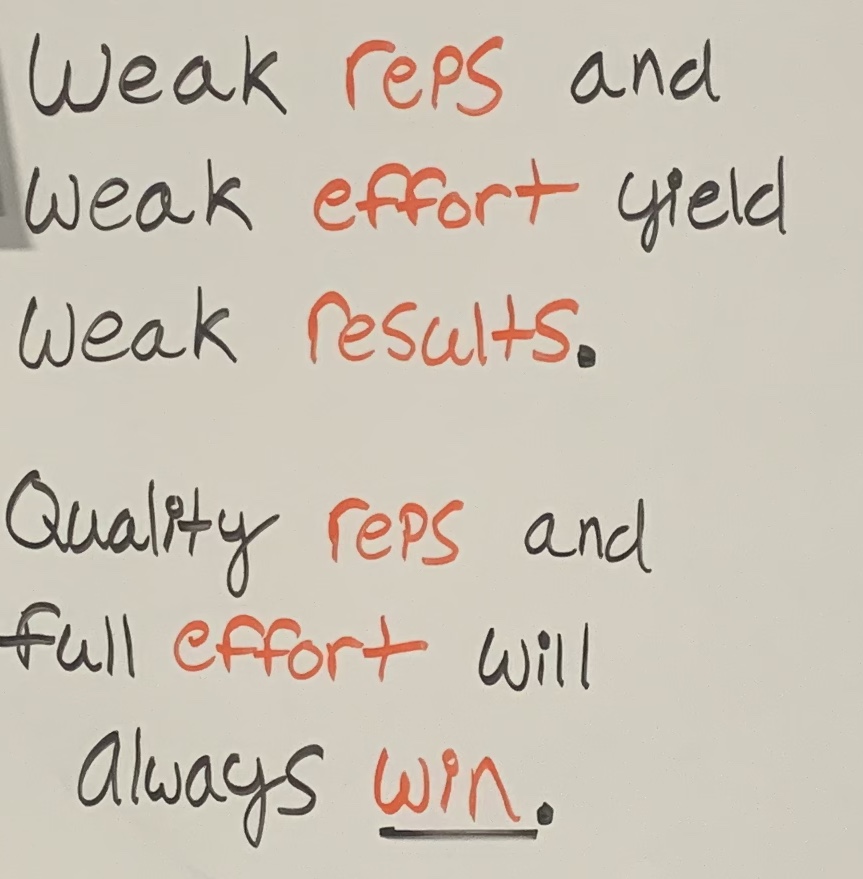 Weak reps and
weak effort yield
weak results.
Quality reps and
full effort will
always win.